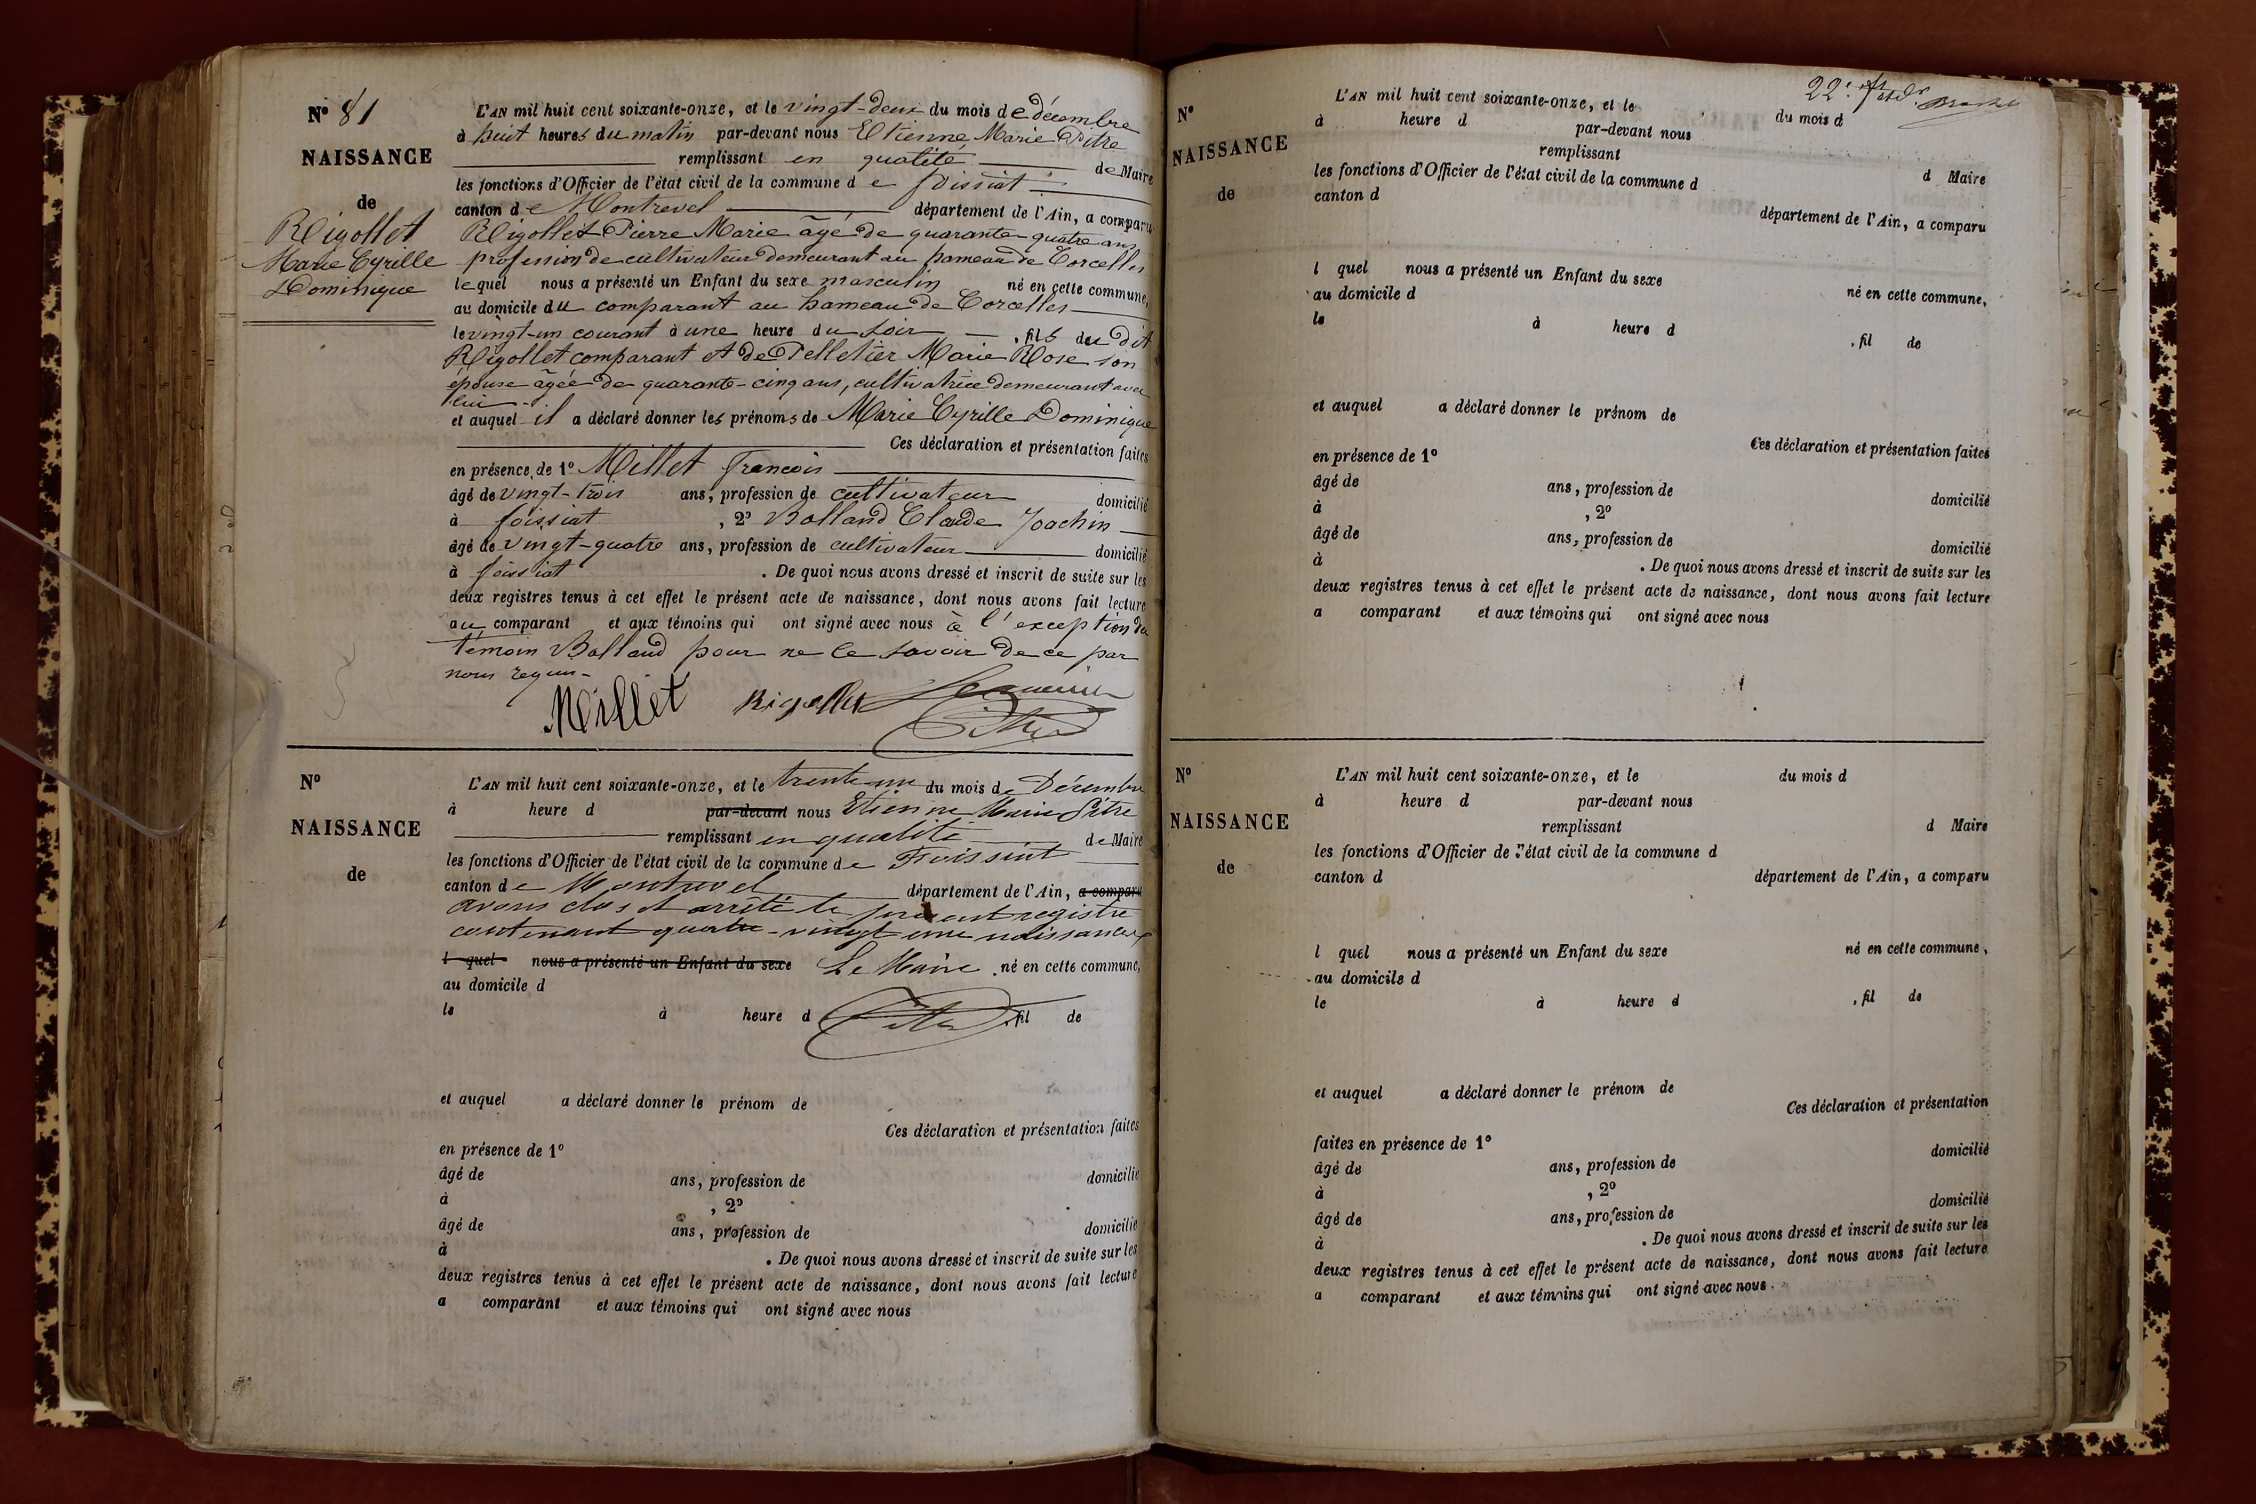 N° 81
NAISSANCE
de
Rigollet
Marie Cyrille
Dominique
L'AN mil huit cent soixante-onze, et le vingt-deux du mois de décembre
à huit heures du matin par-devant nous Etienne Marie Pitre
remplissant en qualité de Maire
les fonctions d'Officier de l'état civil de la commune de foissiat
canton de Montrevel département de l'Ain, a comparu
Rigollet Pierre Marie âgé de quarante-quatre ans
profession de cultivateur demeurant au hameau de Corcelles
lequel nous a présenté un Enfant du sexe masculin né en cette commune,
au domicile du comparant au hameau de Corcelles
le vingt-un courant à une heure du soir , fils du dit
Rigollet comparant et de Pelletier Marie Rose son
épouse âgée de quarante-cinq ans, cultivatrice demeurant avec
lui
et auquel il a déclaré donner les prénoms de Marie Cyrille Dominique
Ces déclaration et présentation faites
en présence de 1° Millet françois
âgé de vingt-trois ans, profession de cultivateur domicilié
à foissiat , 2° Bolland Claude Joachin
âgé de vingt-quatre ans, profession de cultivateur domicilié
à foissiat . De quoi nous avons dressé et inscrit de suite sur les
deux registres tenus à cet effet le présent acte de naissance, dont nous avons fait lecture
au comparant et aux témoins qui ont signé avec nous à l'exception du
témoin Bolland pour ne le savoir de ce par
nous requis
Millet Rigollet
Pitre
N°
NAISSANCE
de
L'AN mil huit cent soixante-onze, et le trente-un du mois de Décembre
à heure d par-devant nous Etienne Marie Pitre
remplissant en qualité de Maire
les fonctions d'Officier de l'état civil de la commune de Foissiat
canton de Montrevel département de l'Ain, a comparu
avons clos et arrêté le présent registre
contenant quatre-vingt une naissances
l quel nous a présenté un Enfant du sexe Le Maire né en cette commune,
au domicile d
le à heure d Pitre , fil de
et auquel a déclaré donner le prénom de
Ces déclaration et présentation faites
en présence de 1°
âgé de ans, profession de domicilié
à , 2°
âgé de ans, profession de domicilié
à . De quoi nous avons dressé et inscrit de suite sur les
deux registres tenus à cet effet le présent acte de naissance, dont nous avons fait lecture
a comparant et aux témoins qui ont signé avec nous
22e
N°
NAISSANCE
de
L'AN mil huit cent soixante-onze, et le du mois d
à heure d par-devant nous
remplissant d Maire
les fonctions d'Officier de l'état civil de la commune d
canton d département de l'Ain, a comparu
l quel nous a présenté un Enfant du sexe né en cette commune,
au domicile d
le à heure d , fil de
et auquel a déclaré donner le prénom de
Ces déclaration et présentation faites
en présence de 1°
âgé de ans, profession de domicilié
à , 2°
âgé de ans, profession de domicilié
à . De quoi nous avons dressé et inscrit de suite sur les
deux registres tenus à cet effet le présent acte de naissance, dont nous avons fait lecture
a comparant et aux témoins qui ont signé avec nous
N°
NAISSANCE
de
L'AN mil huit cent soixante-onze, et le du mois d
à heure d par-devant nous
remplissant d Maire
les fonctions d'Officier de l'état civil de la commune d
canton d département de l'Ain, a comparu
l quel nous a présenté un Enfant du sexe né en cette commune,
au domicile d
le à heure d , fil de
et auquel a déclaré donner le prénom de
Ces déclaration et présentation
faites en présence de 1° domicilié
âgé de ans, profession de
à , 2° domicilié
âgé de ans, profession de
à . De quoi nous avons dressé et inscrit de suite sur les
deux registres tenus à cet effet le présent acte de naissance, dont nous avons fait lecture
a comparant et aux témoins qui ont signé avec nous